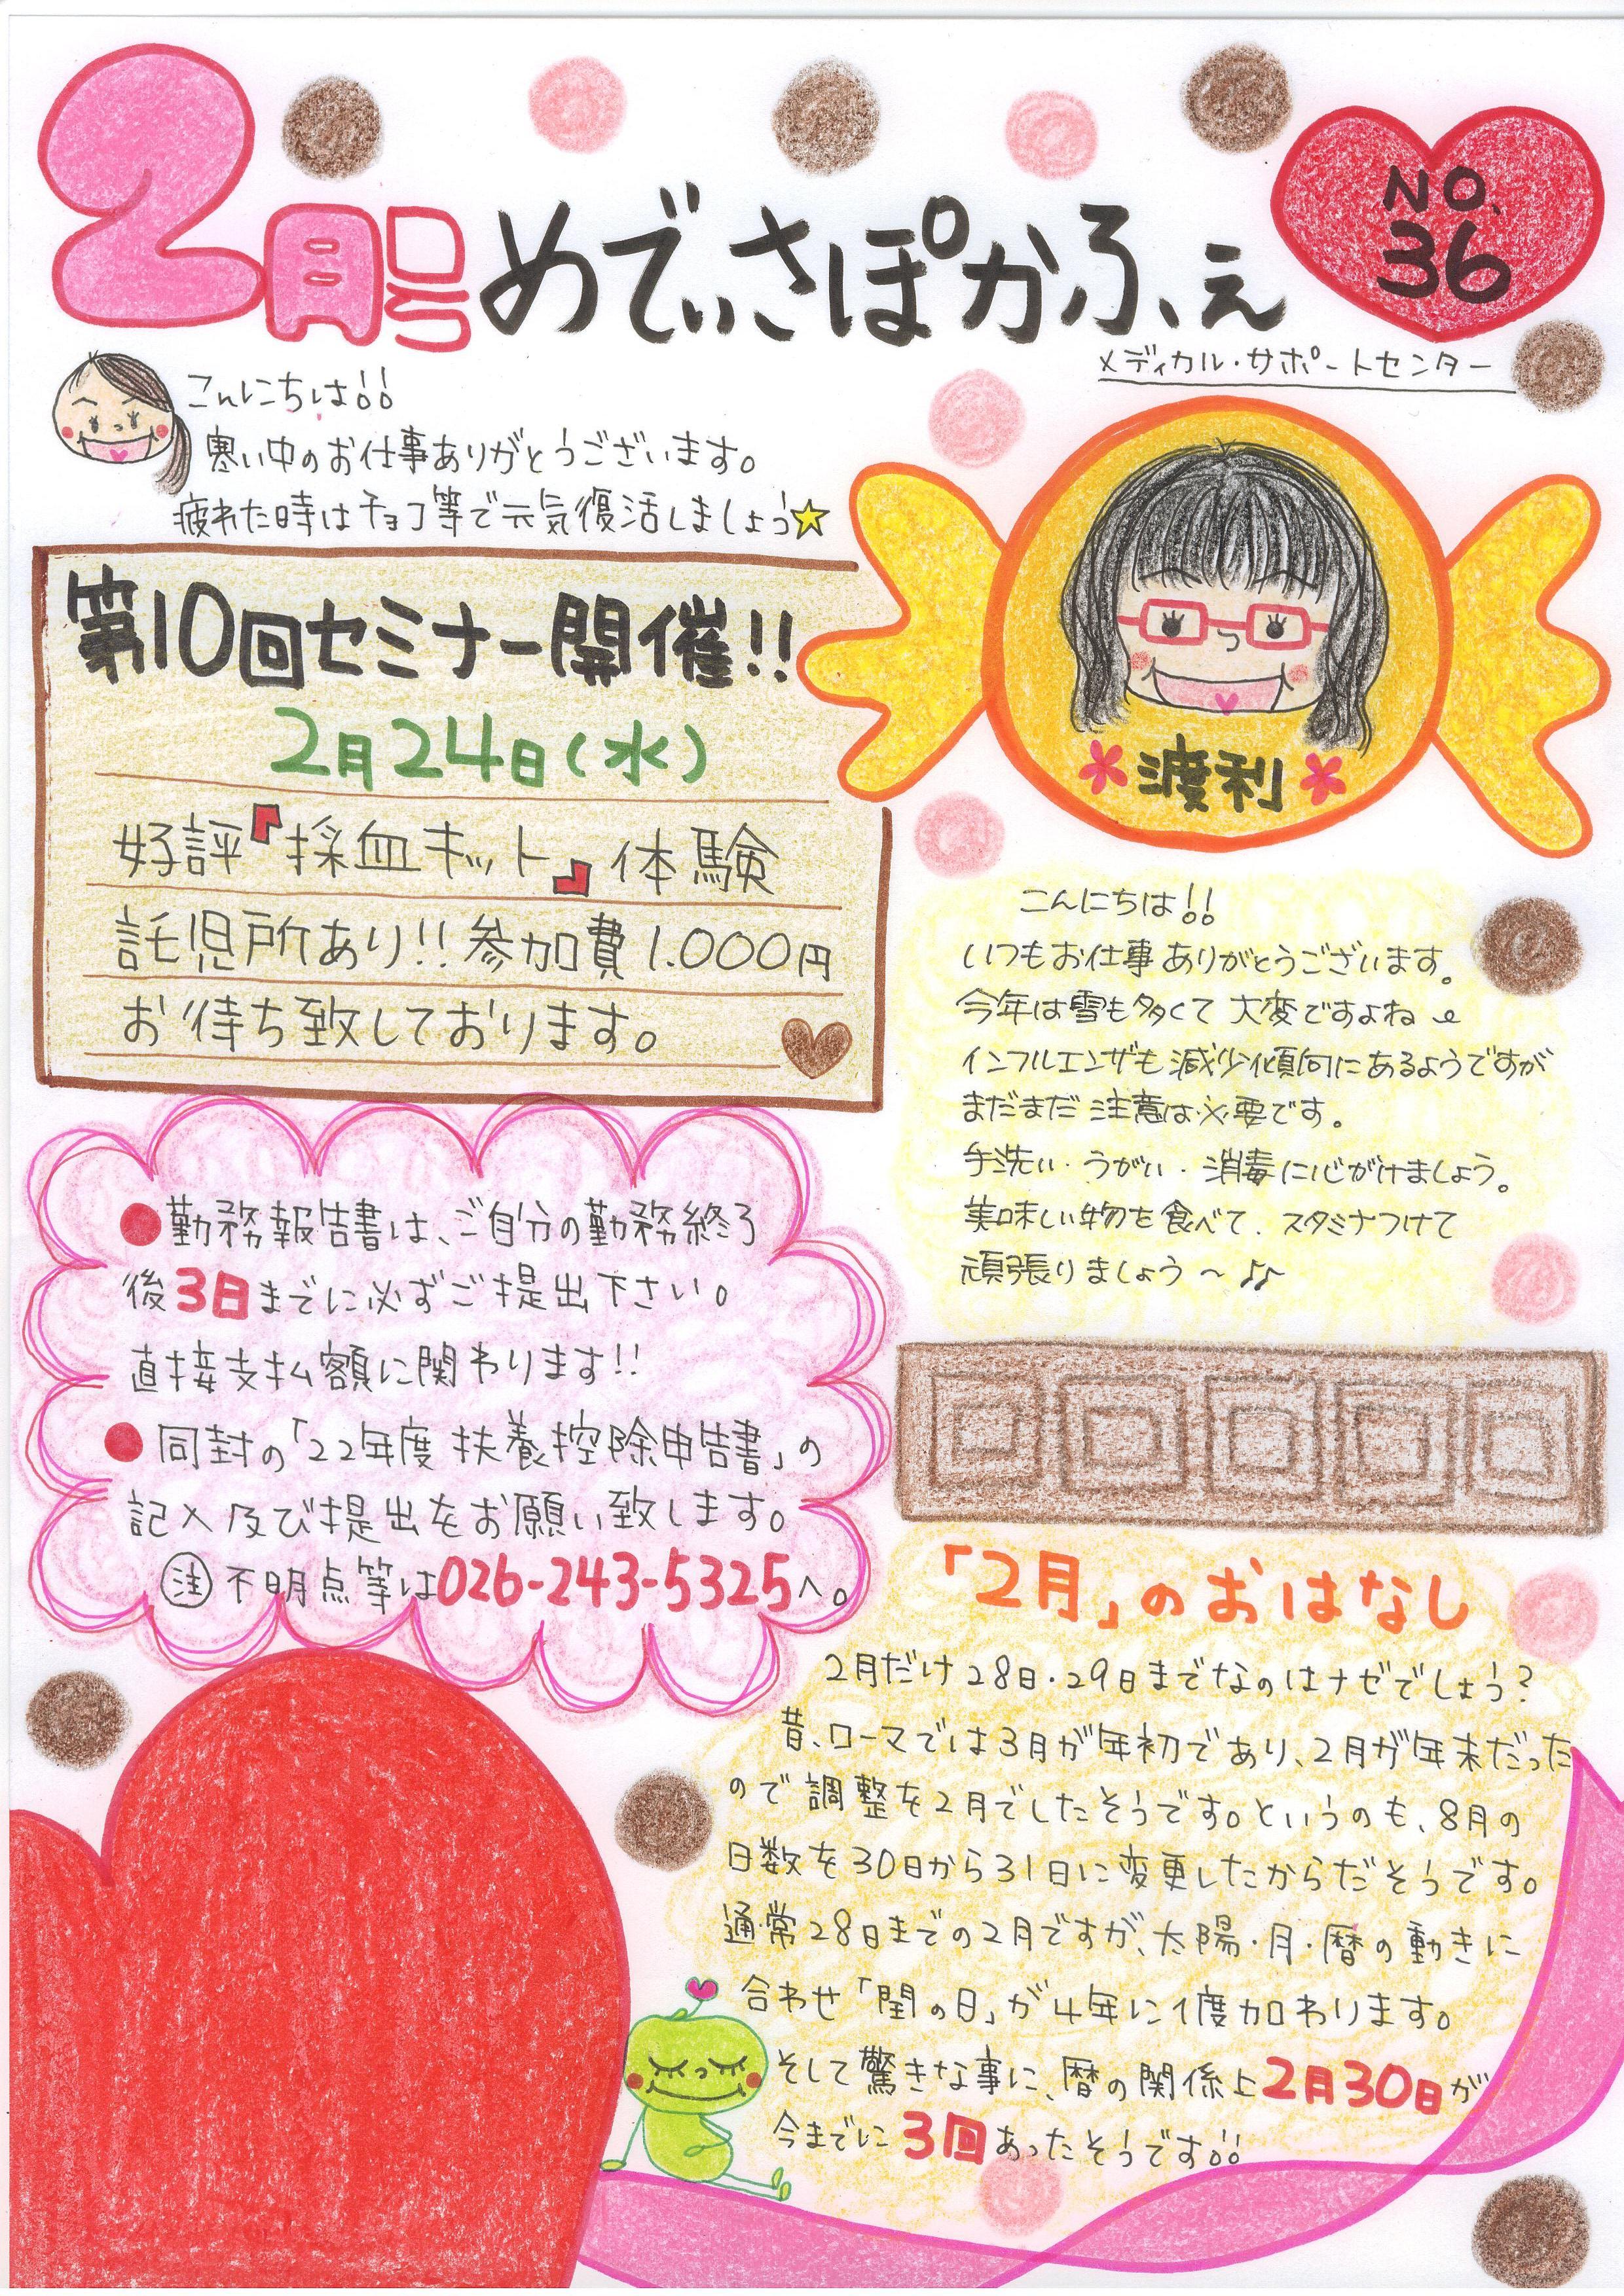 2月号 めでぃさぽかふぇ
NO.
36
メディカル・サポートセンター
こんにちは!!
寒い中のお仕事ありがとうございます。
疲れた時はチョコ等で元気復活しましょう☆
第10回セミナー開催!!
2月24日(水)
好評『採血キット』体験
託児所あり!!参加費1.000円
お待ち致しております。
渡利
こんにちは!!
いつもお仕事ありがとうございます。
今年は雪も多くて大変ですよね
インフルエンザも減少傾向にあるようですが
まだまだ注意は必要です。
手洗い・うがい・消毒に心がけましょう。
美味しい物を食べて、スタミナつけて
頑張りましょう〜♪
●勤務報告書は、ご自分の勤務終了
後3日までに必ずご提出下さい。
直接支払額に関わります!!
●同封の「22年度扶養控除申告書」の
記入及び提出をお願い致します。
注 不明点等は026-243-5325へ。
「2月」のおはなし
2月だけ28日・29日までなのはナゼでしょう?
昔、ローマでは3月が年初であり、2月が年末だった
ので調整を2月でしたそうです。というのも、8月の
日数を30日から31日に変更したからだそうです。
通常28日までの2月ですが、太陽・月・暦の動きに
合わせ「閏の日」が4年に1度加わります。
そして驚きな事に、暦の関係上2月30日が
今までに3回あったそうです!!